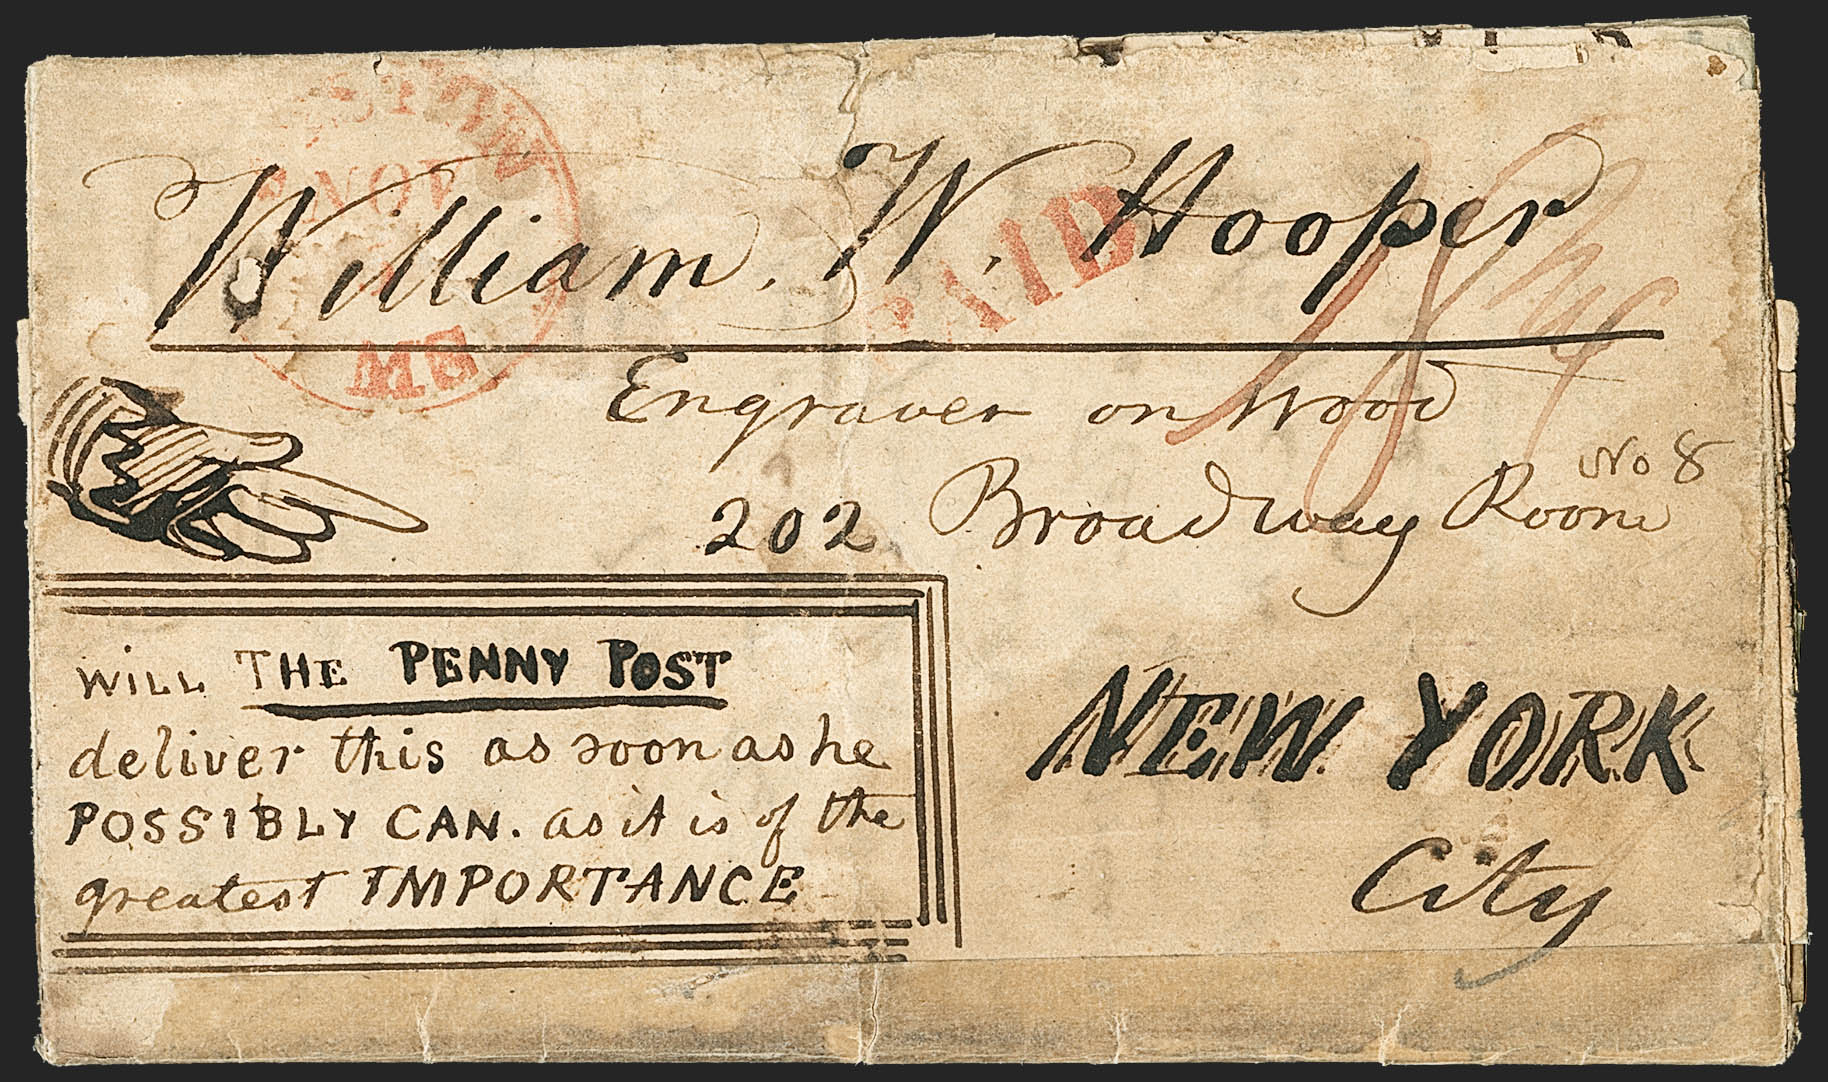 NOV
PAID
William. W. Hooper
Engraver on Wood
202 Broadway Room No 8
WILL THE PENNY POST
deliver this as soon as he
POSSIBLY CAN. as it is of the
greatest IMPORTANCE
NEW YORK
City